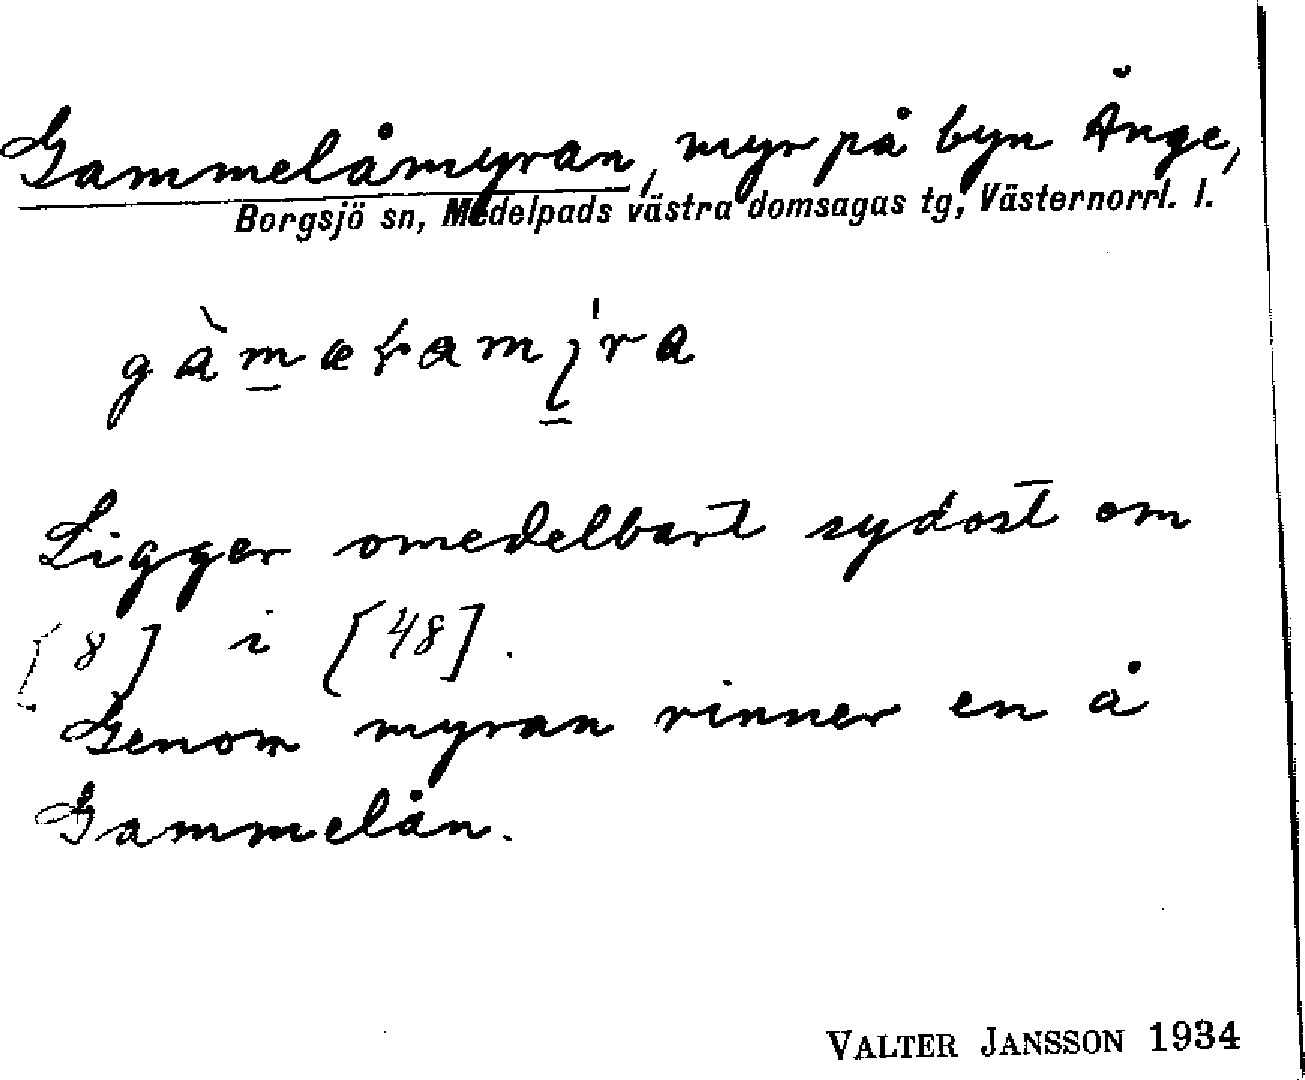 Gammelåmyran, myr på byn Ånge,
Borgsjö sn, Medelpads västra domsagas tg, Västernorrl. l.
Ligger omedelbart sydost om
[8] i [48].
Genom myran rinner en å
Gammelån.
VALTER JANSSON 1934